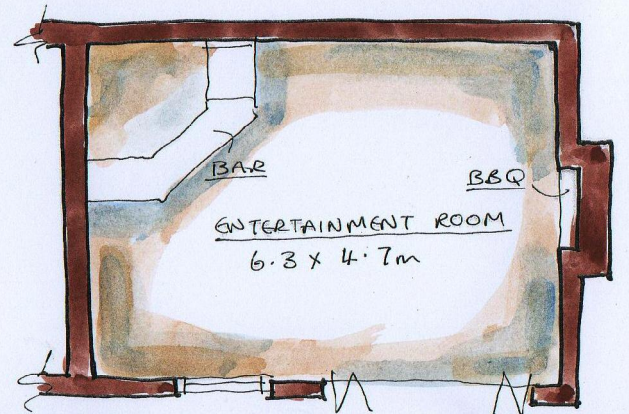 BAR
BBQ
ENTERTAINMENT ROOM
6.3 x 4.7m